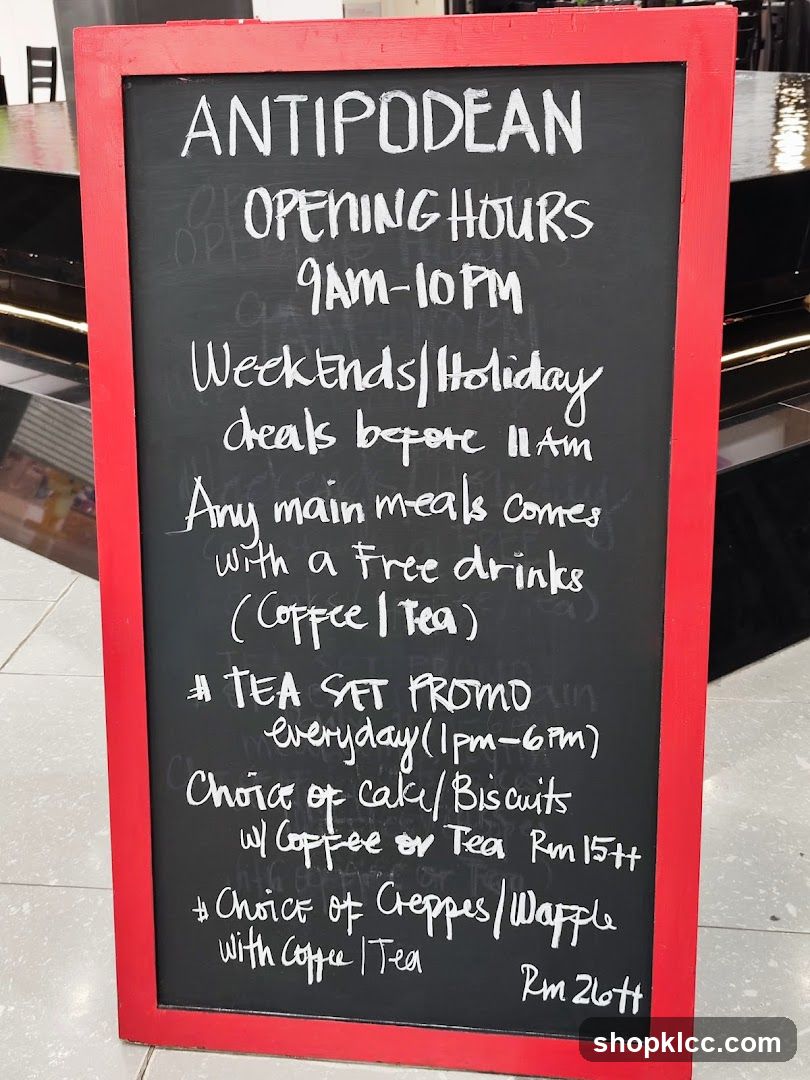 ANTIPODEAN
OPENING HOURS
9AM-10PM
WeekEnds/Holiday
deals before 11AM
Any main meals comes
with a Free drinks
(Coffee/Tea)
# TEA SET PROMO
everyday (1pm-6pm)
Choice of cake/Biscuits
w/ Coffee or Tea Rm 15++
# Choice of Creppes/Waffle
with Coffee/Tea
Rm 26++
shopklcc.com